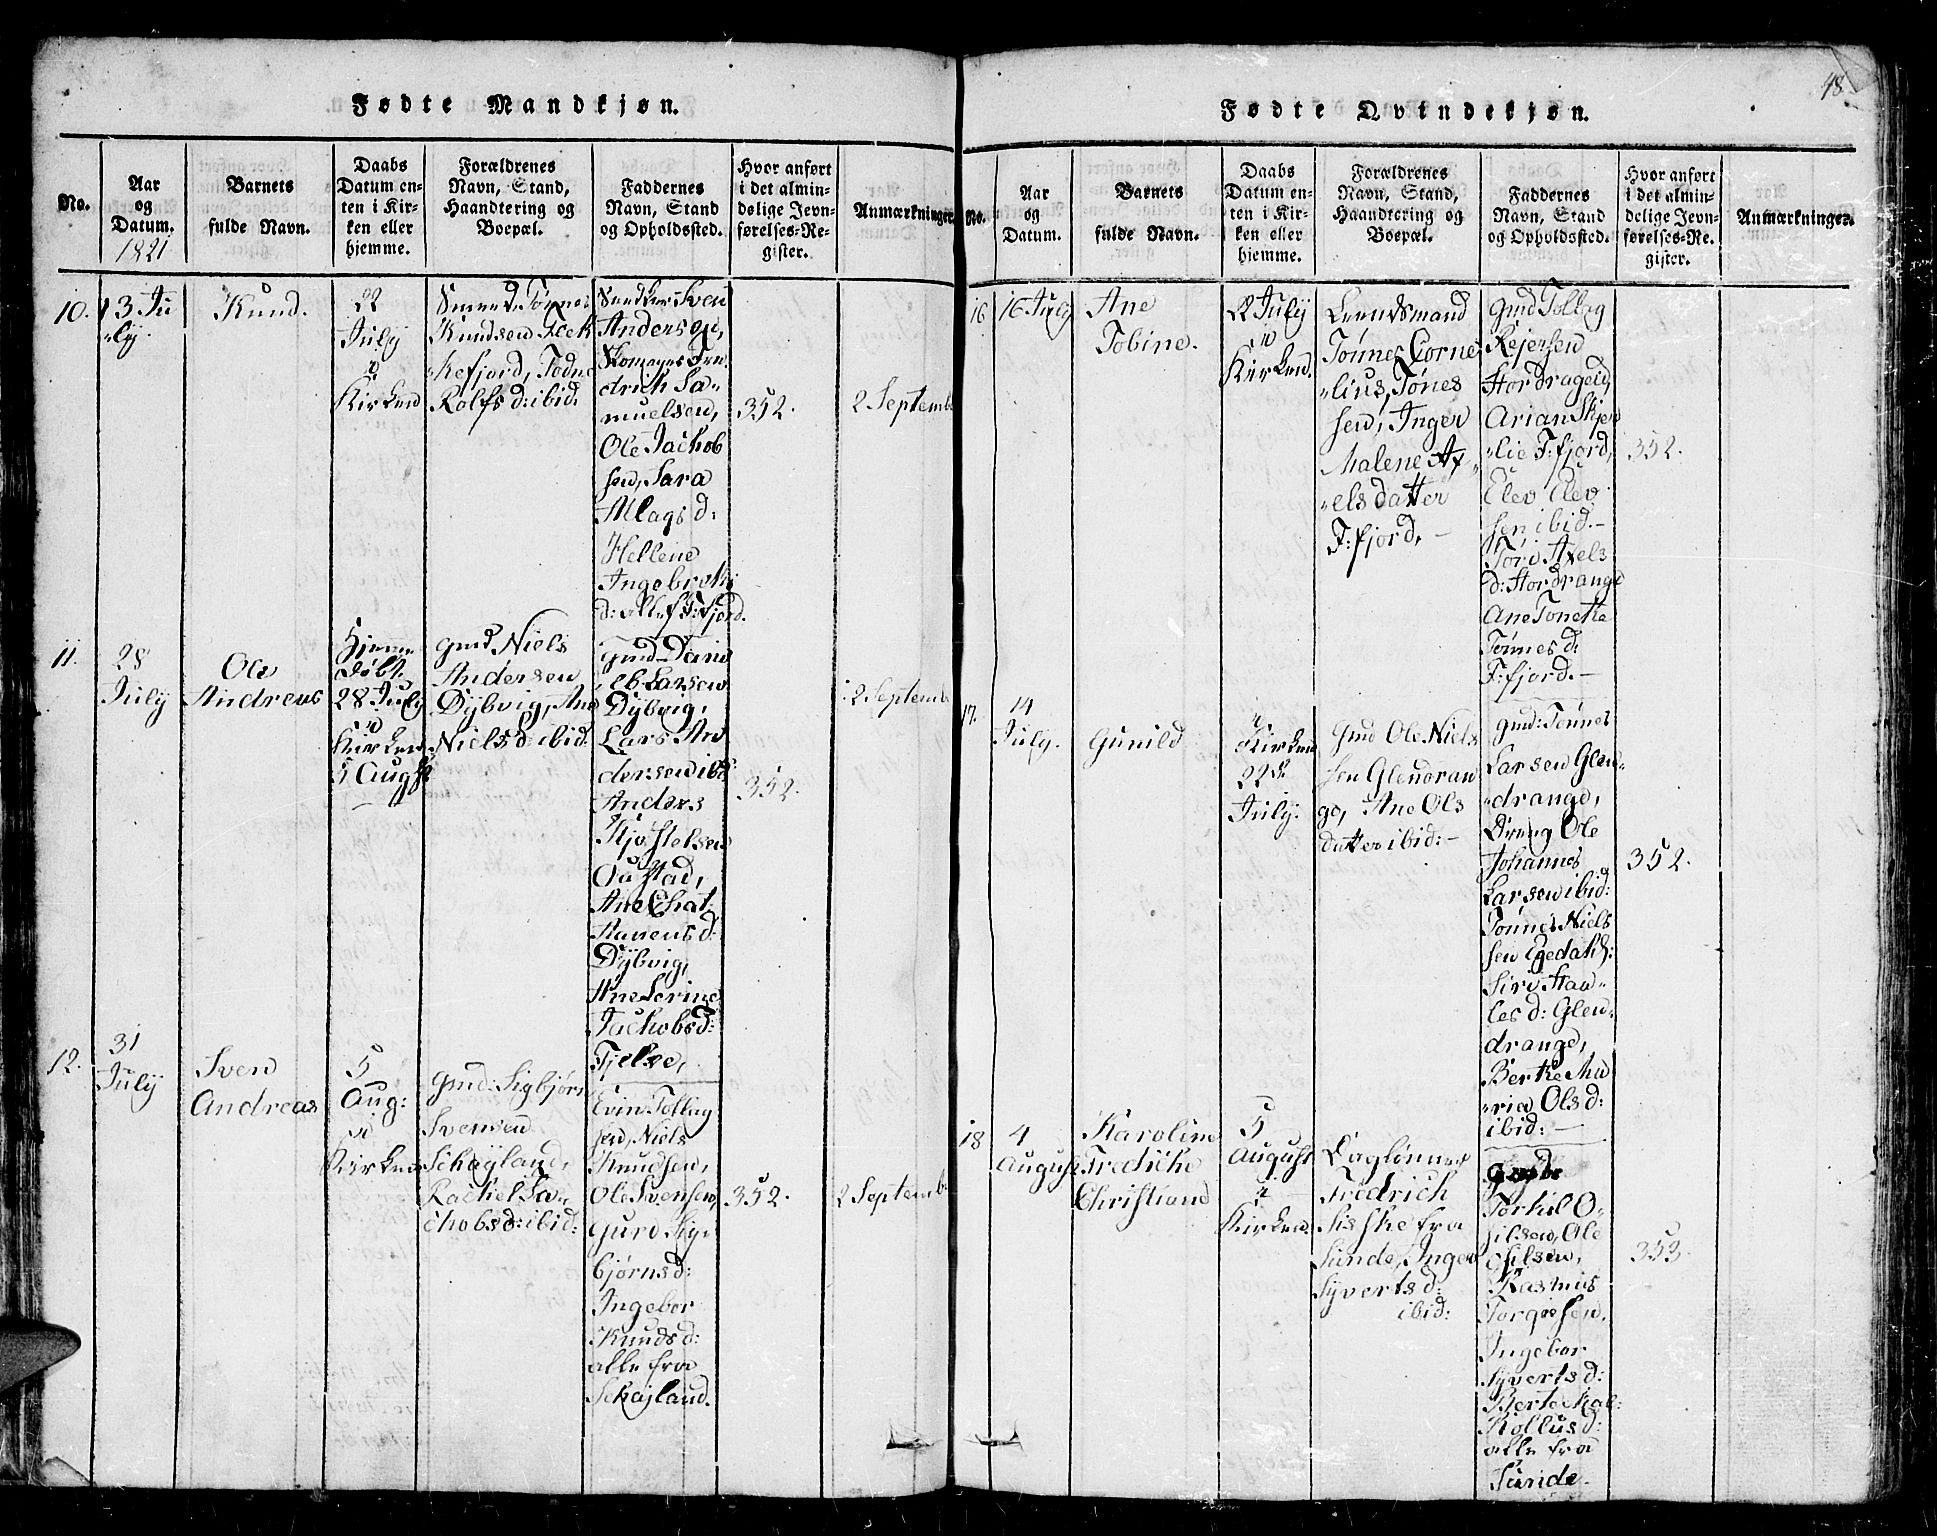 48.
Fødte Mandkjøn.
No.
Aar
og
Datum.
1821
Barnets
fulde Navn.
Daabs
Datum en-
ten i Kir-
ken eller
hjemme.
Forældrenes
Navn, Stand,
Haandtering og
Boepæl.
Faddernes
Navn, Stand
og Opholdssted.
Hvor anført
i det almin-
delige Jevn-
førelses-Re-
gister.
Anmærkninger.
10.
13 Ju
"ly.
Knud.
22
July
i
Kirken
Tønnes
Knudsen
"kefjord, Todne
Rolfs d: ibid.
Sven
Andersen,
drich Sa-
muelsen,
Ole Jachob
sen, Sara
Allags d:
Hellene
Ingebreths
d: alle f F:fjord.
352.
2 Septemb
11.
28
July
Ole
Andreas
Hjemme
døbt
28 July
i
Kirken
5 Augst
Gmd Niels
Andersen
Dybvig, Ane
Niels d: ibid.
Gmd Dani
el Larsen
Dybvig,
Lars An
dersen ibd:
Anders
Kjøstelsen
Ouestad,
Ane Chat:
Ravens d:
Dybvig,
Ane Serine
Jachobs d:
Fjelse,
352.
2 Septemb
12.
31
July
Sven
Andreas
5
Aug:
i
Kirken
Gmd: Sigbjørn
Svensen
Schøyland,
Rachel Ja-
chobs d: ibid:
Evin Tollag
sen, Niels
Knudsen,
Ole Svensen,
Guro Sig-
bjørns d:
Ingebor
Knuds d:
alle fra
Schøjland.
352.
2 Septemb
Fødte Qvindekjøn.
No.
Aar
og
Datum.
Barnets
fulde Navn.
Daabs
Datum en-
ten i Kir-
ken eller
hjemme.
Forældrenes
Navn, Stand,
Haandtering og
Boepæl.
Faddernes
Navn, Stand
og Opholdssted.
Hvor anført
i det almin-
delige Jevn-
førelses-Re-
gister.
Anmærkninger.
16
16 July
Ane
Tobine.
22 July
i
Kirken.
Leendsmand
Tønnes Corne
"lius, Tønes
sen, Inger
Malene Ax
"els datter
F:fjord. —
Gmd Tollag
Rejersen
Stordrageig
Arian Skjer
"lie F:fjord,
Elev Elev
sen, ibid. —
Tore Axels
d: Stordrange
Ane Tonette
Tønnes d:
F:fjord. —
352.
17.
14
July.
Gunild
i
Kirken
22de
July.
Gmd Ole Niels
sen Glendran
ge, Ane Ols
datter ibid: —
Gmd: Tønnes
Larsen Glen
"drange,
Dreng Ole
Johannes
Larsen ibid:
Tønnes Niels
sen Egedahl:
Siri Han-
les d: Glen-
drange,
Berte Ma
"ria Ols d:
ibid: —
352.
18
4
August
Karoline
Fredriche
Christiane
5
August
i
Kirken.
Daglønner
Fredrich
Siske fra
Sunde, Inger
Syverts d:
ibid:
Torkel O-
silsen, Ole
Osilsen,
Rasmus
Torgiesen.
Ingebor
Syverts d:
Berte Mal:
Rollus d:
alle fra
Sunde.
353.